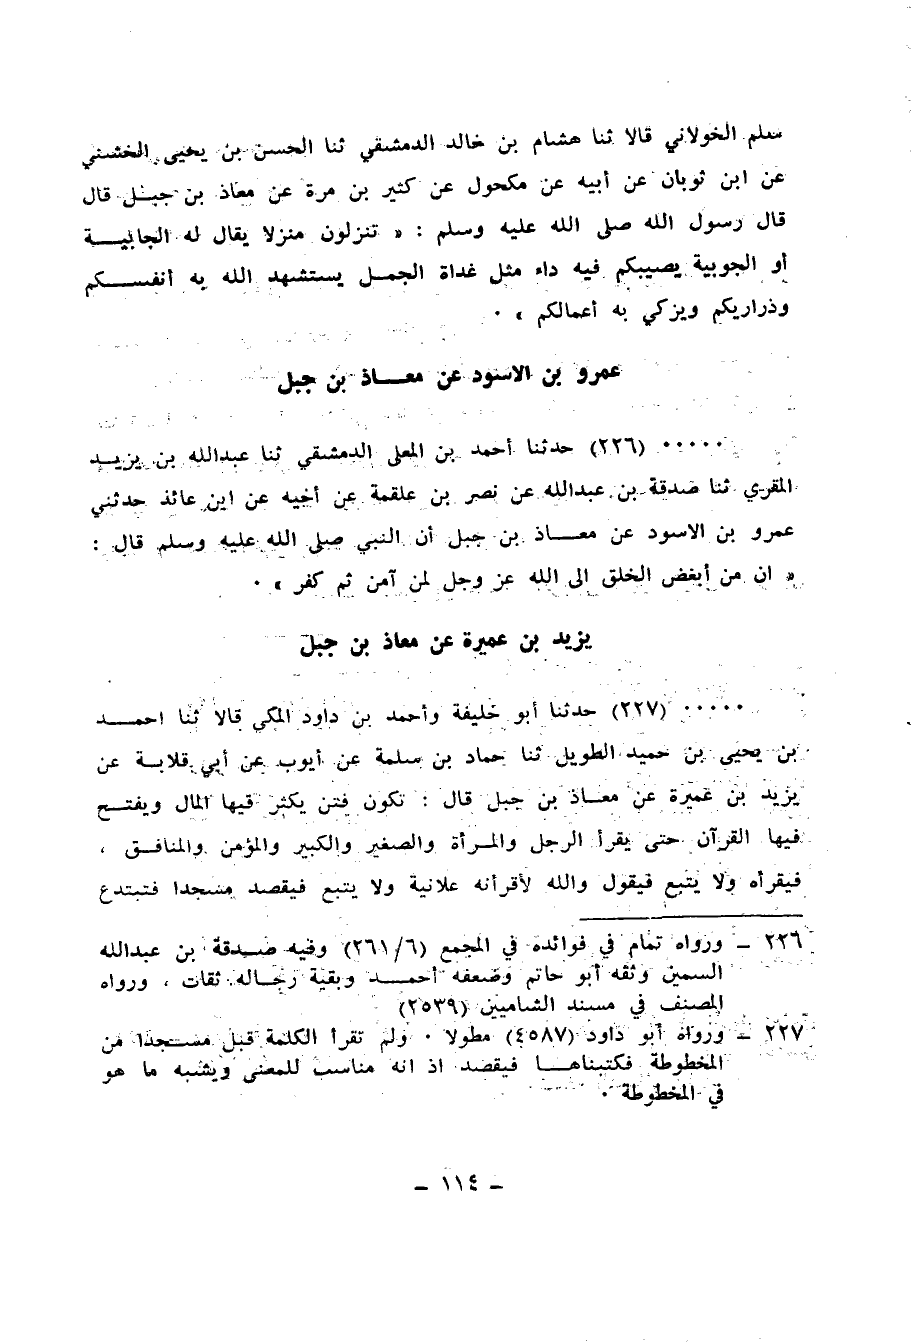 سلم الخولاني قالا ثنا هشام بن خالد الدمشقي ثنا الحسن بن يحيى الخشني
عن ابن ثوبان عن أبيه عن مكحول عن كثير بن مرة عن معاذ بن جبـل قال
قال رسول الله صلى الله عليه وسلم : « تنزلون منزلا يقال له الجابيـــة
أو الجوبية يصيبكم فيه داء مثل غداة الجمـل يستشهد الله به أنفســـكم
وذراريكم ويزكي به أعمالكم » ٠
عمرو بن الاسود عن معـــاذ بن جبل
٠٠٠٠٠ (٢٢٦) حدثنا أحمد بن المعلى الدمشقي ثنا عبدالله بن يزيــد
المقري ثنا صدقة بن عبدالله عن نصر بن علقمة عن أخيه عن ابن عائذ حدثني
عمرو بن الاسود عن معـــاذ بن جبل أن النبي صلى الله عليه وسلم قال :
« ان من أبغض الخلق الى الله عز وجل لمن آمن ثم كفر » ٠
يزيد بن عميرة عن معاذ بن جبل
٠٠٠٠٠ (٢٢٧) حدثنا أبو خليفة وأحمد بن داود المكي قالا ثنا احمـــد
بن يحيى بن حميد الطويل ثنا حماد بن سلمة عن أيوب عن أبي قلابـة عن
يزيد بن عميرة عن معـاذ بن جبل قال : تكون فتن يكثر فيها المال ويفتـــح
فيها القرآن حتى يقرأ الرجل والمـرأة والصغير والكبير والمؤمن والمنافـق ،
فيقرأه ولا يتبع فيقول والله لأقرأنه علانية ولا يتبع فيقصد مسجدا فتبتدع
٢٢٦ ـ ورواه تمام في فوائده في المجمع (٢٦١/٦) وفيه صـدقة بن عبدالله
السمين وثقه أبو حاتم وضعفه أحمـــد وبقية رجـاله ثقات ، ورواه
المصنف في مسند الشاميين (٢٥٣٩)
٢٢٧ ـ ورواه أبو داود (٤٥٨٧) مطولا ٠ ولم تقرأ الكلمة قبل مسـجدا من
المخطوطة فكتبناهـــا فيقصد اذ انه مناسب للمعنى ويشبه ما هو
في المخطوطة ٠
ـ ١١٤ ـ